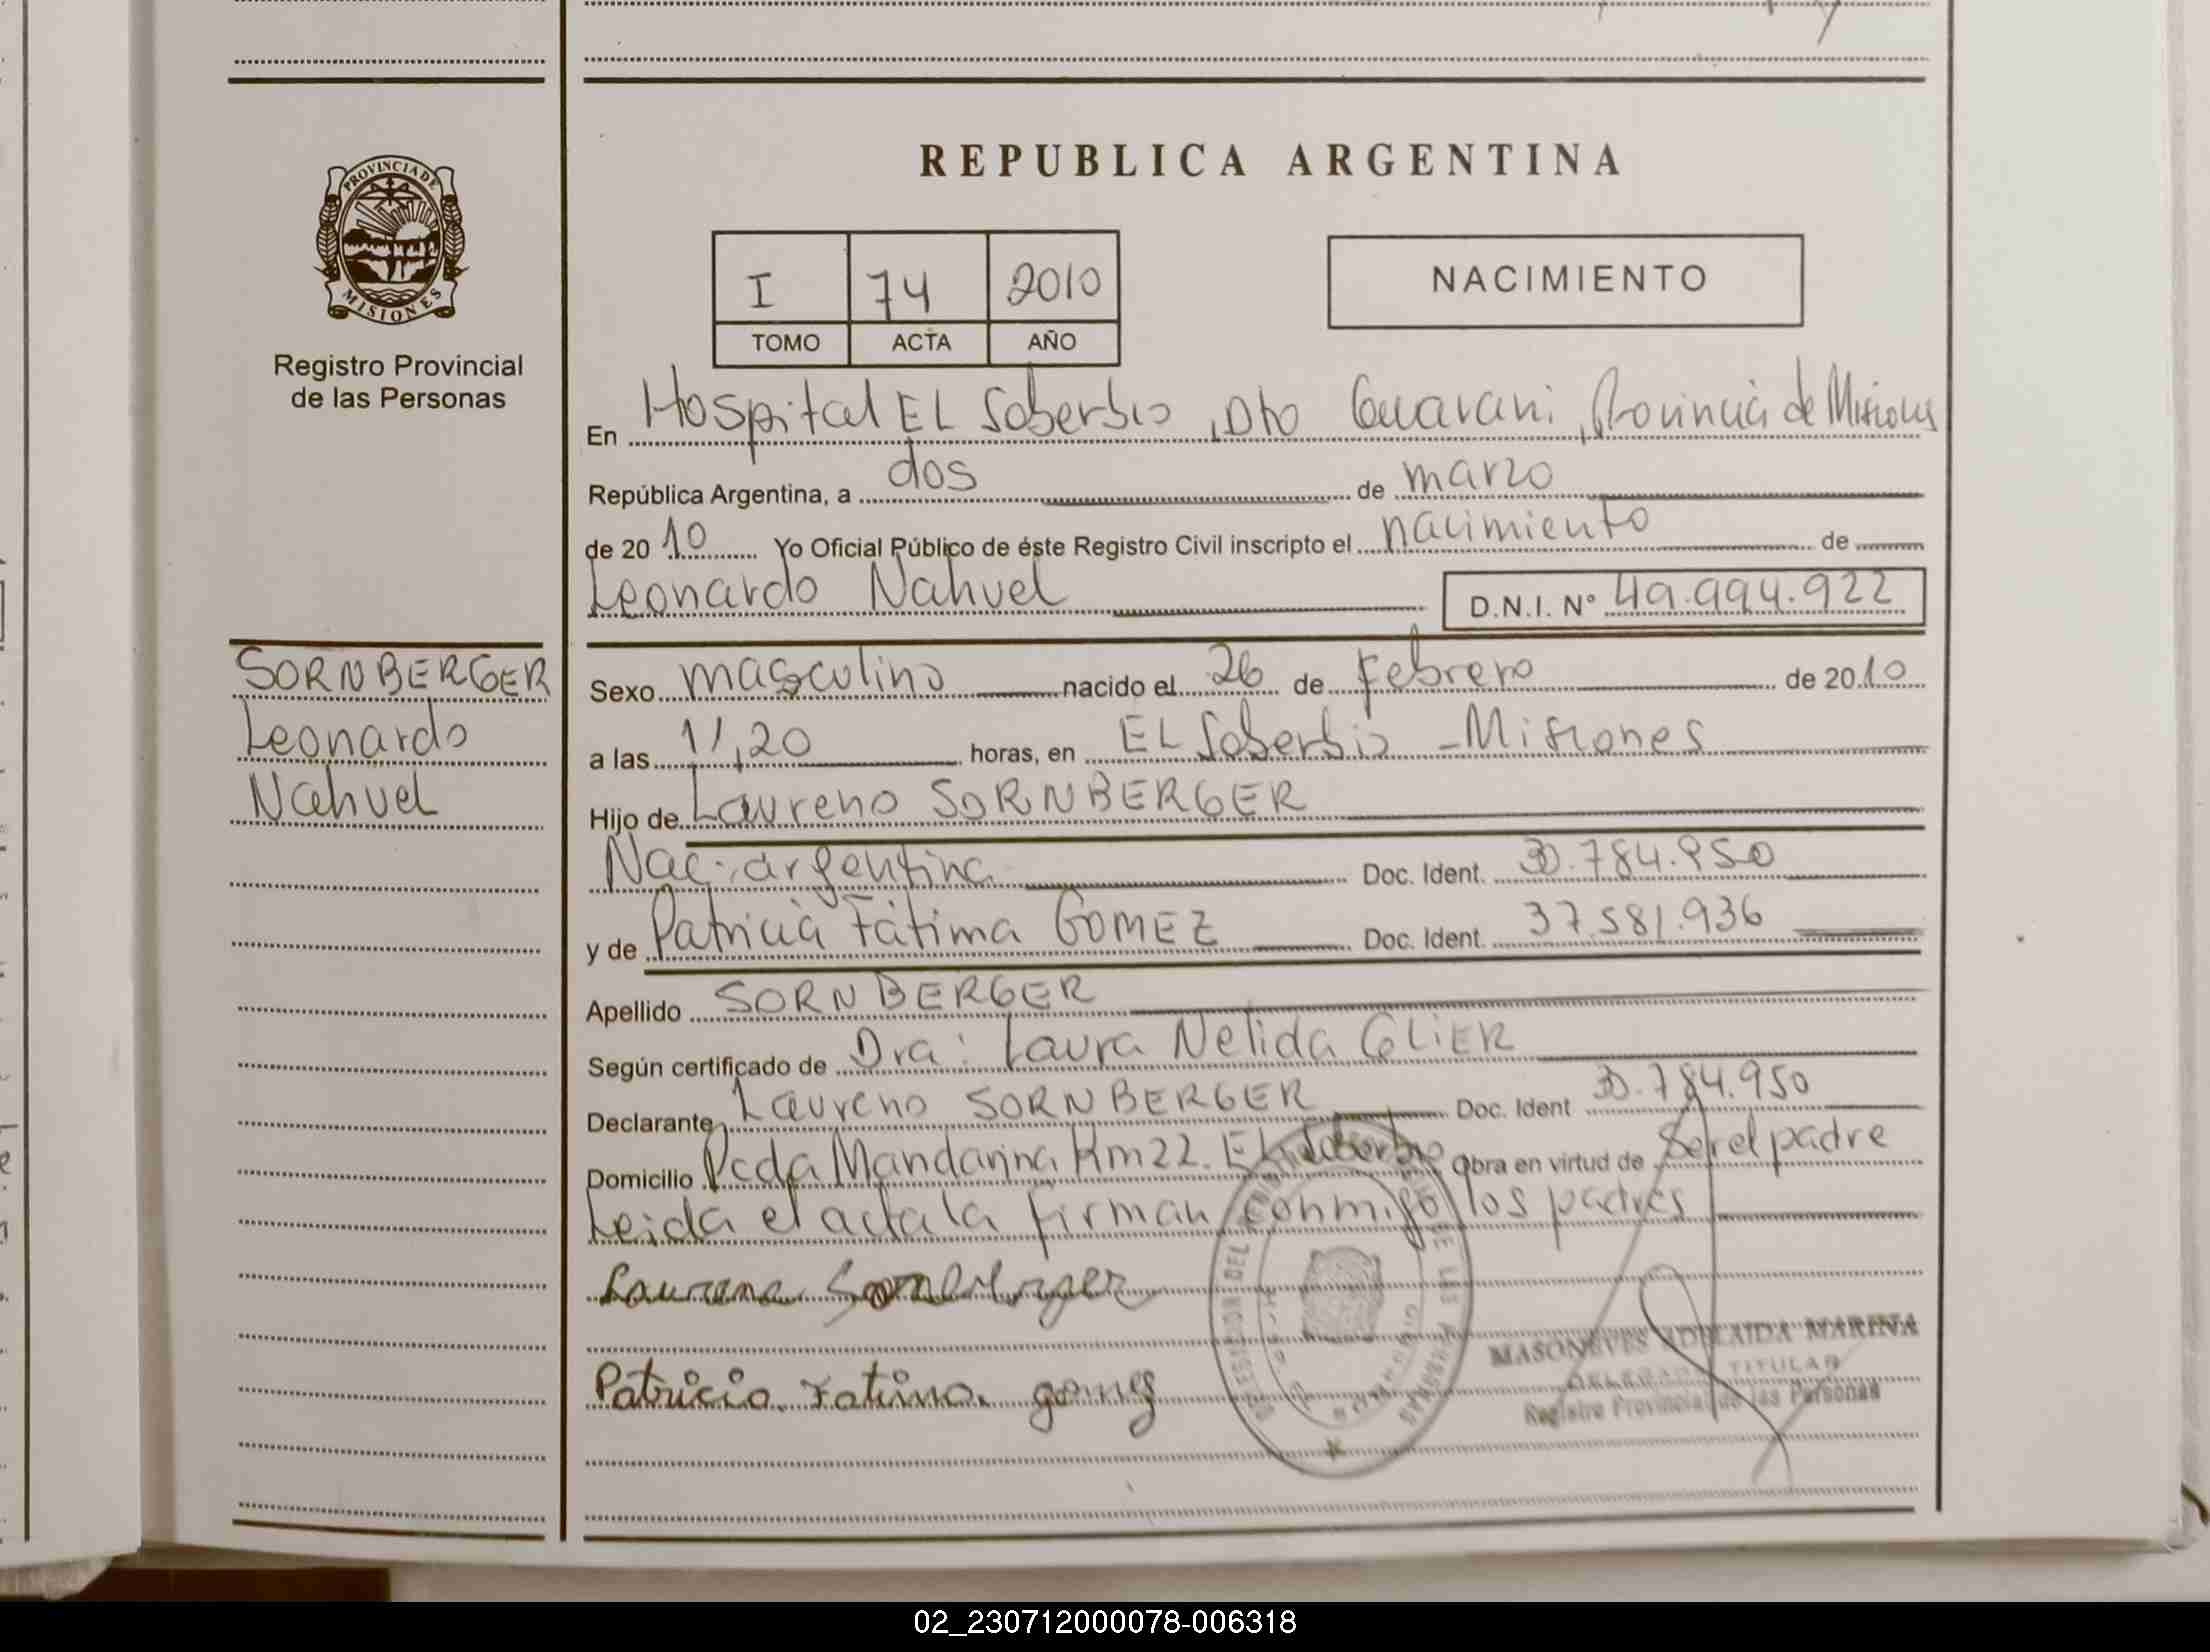 REPUBLICA ARGENTINA
PROVINCIA DE
MISIONES
Registro Provincial
de las Personas
I 74 2010
TOMO ACTA AÑO
NACIMIENTO
En Hospital EL Soberbio, Dto Guarani, Provincia de Misiones
República Argentina, a dos de marzo
de 2010 Yo Oficial Público de éste Registro Civil inscripto el nacimiento de
Leonardo Nahuel D.N.I. Nº 49.994.922
SORNBERGER
Leonardo
Nahuel
Sexo masculino nacido el 26 de Febrero de 2010
a las 11,20 horas, en EL Soberbio - Misiones
Hijo de Laureno SORNBERGER
Nac: argentina Doc. Ident. 30.784.950
y de Patricia Fátima GOMEZ Doc. Ident. 37.581.936
Apellido SORNBERGER
Según certificado de Dra: Laura Nelida GLIER
Declarante Laureno SORNBERGER Doc. Ident 30.784.950
Domicilio Pcda Mandarina Km 22. EL Soberbio Obra en virtud de Ser el padre
Leida el acta la firman conmigo los padres
Laureno Sornberger
Patricia Fatima gomez
MASONEVES ADELAIDA MARINA
DELEGADA TITULAR
Registro Provincial de las Personas
02_230712000078-006318